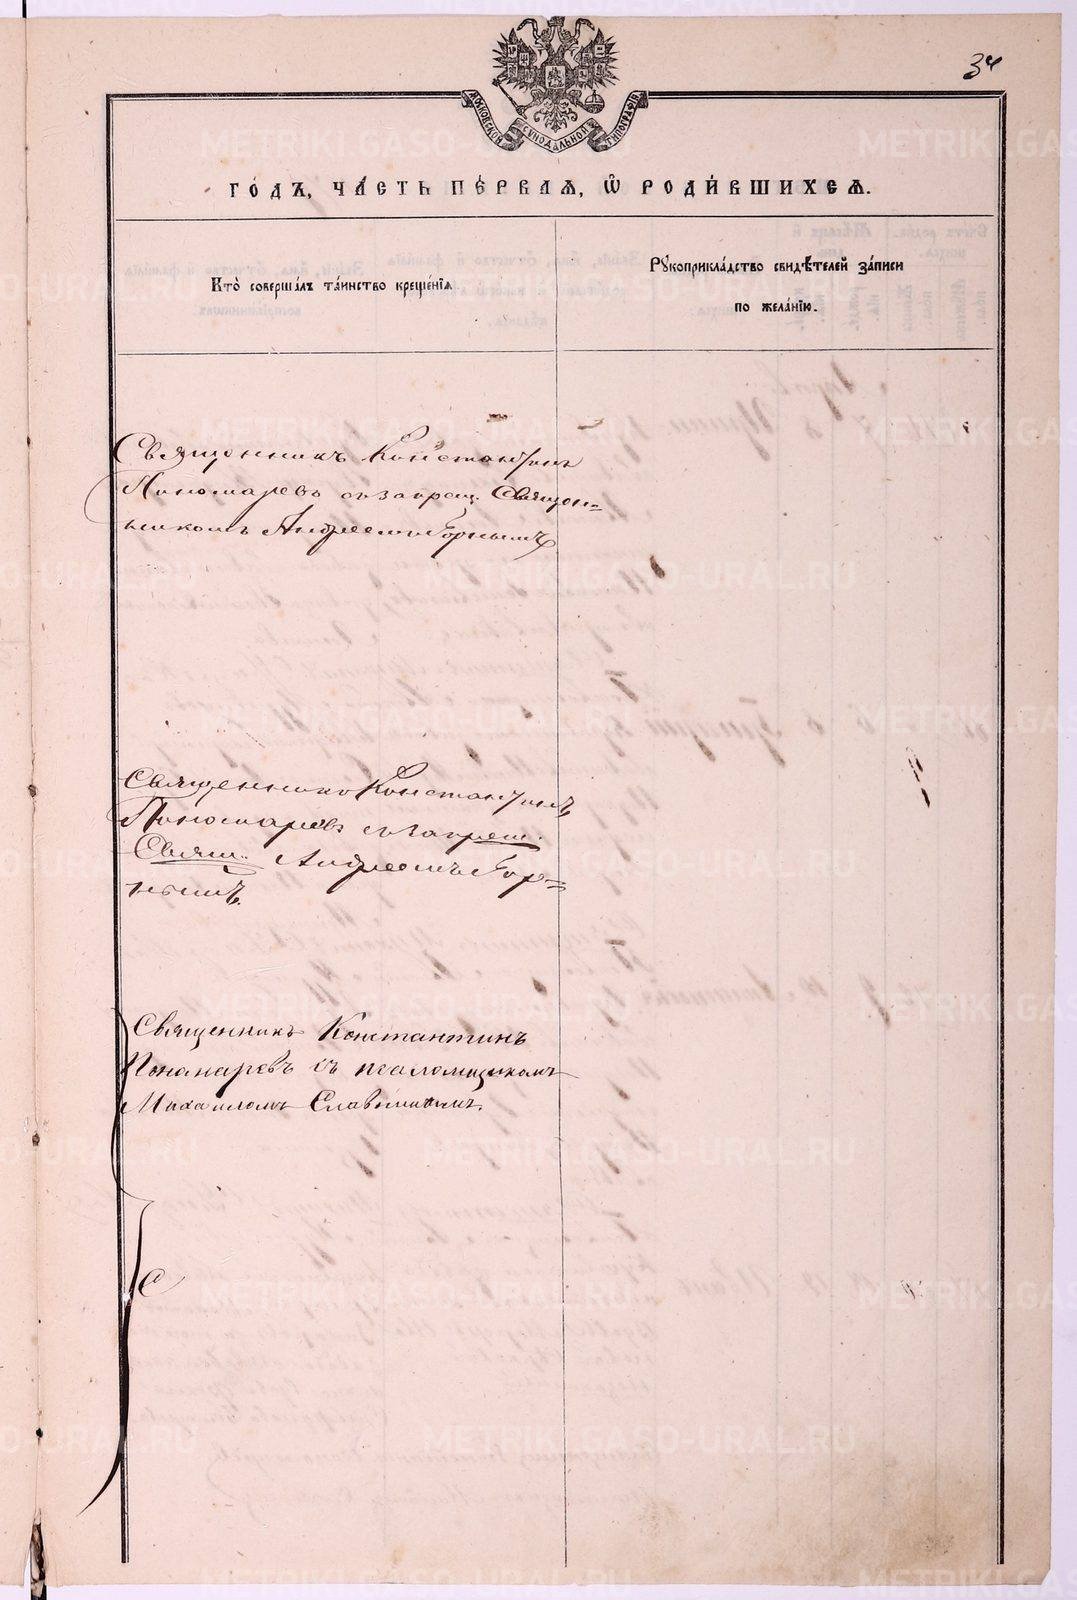 34
МОСКОВСКОЙ СѴНОДАЛЬНОЙ ТИПОГРАФІИ
ГО́ДЪ, ЧА́СТЬ ПЕ́РВАѦ, Ѽ РОДИ́ВШИХСѦ.
Кто̀ соверша́лъ та́инство креще́нїѧ.
Рꙋкоприкла́дство свидѣ́телей за́писи
по жела́нїю.
Священникъ Константинъ
Пономаревъ съ запрещ. Священ=
никомъ Андреемъ Горнымъ
Священникъ Константинъ
Пономаревъ съ запрещ.
Свящ. Андреемъ Гор=
нымъ.
Священникъ Константинъ
Понамаревъ съ псаломщикомъ
Михаиломъ Славнинымъ.
С
METRIKI.GASO-URAL.RU